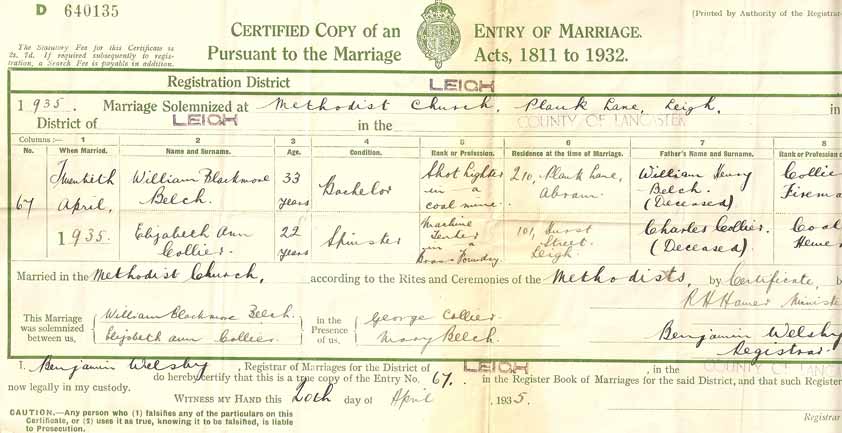 D 640135
CERTIFIED COPY of an ENTRY OF MARRIAGE.
Pursuant to the Marriage Acts, 1811 to 1932.
(Printed by Authority of the Registrar
The Statutory Fee for this Certificate is
2s. 7d. If required subsequently to regis-
tration, a Search Fee is payable in addition.
Registration District LEIGH
1935. Marriage Solemnized at Methodist Church, Plank Lane, Leigh, in
District of LEIGH in the COUNTY OF LANCASTER
Columns :— 1 2 3 4 5 6 7 8
No. When Married. Name and Surname. Age. Condition. Rank or Profession. Residence at the time of Marriage. Father's Name and Surname. Rank or Profession o
67 Twentieth April, 1935. William Blackmore Belch. 33 years Bachelor Shot lighter in a coal mine. 210, Plank Lane, Abram. William Henry Belch. (Deceased) Collie Firema
Elizabeth Ann Collier. 22 years Spinster Machine Tenter in a Brass Foundry. 101, Street Leigh Charles Collier. (Deceased) Coal Hewe
Married in the Methodist Church, according to the Rites and Ceremonies of the Methodists, by Certificate, b
R H Hamer Ministe
This Marriage was solemnized between us, William Blackmore Belch. Elizabeth Ann Collier. in the Presence of us, George Collier. Mary Belch.
Benjamin Welsby
Registrar.
I, Benjamin Welsby, Registrar of Marriages for the District of LEIGH, in the COUNTY OF LANCA
do hereby certify that this is a true copy of the Entry No. 67. in the Register Book of Marriages for the said District, and that such Register
now legally in my custody.
WITNESS MY HAND this 20th day of April, 1935.
CAUTION.—Any person who (1) falsifies any of the particulars on this
Certificate, or (2) uses it as true, knowing it to be falsified, is liable
to Prosecution.
Registrar